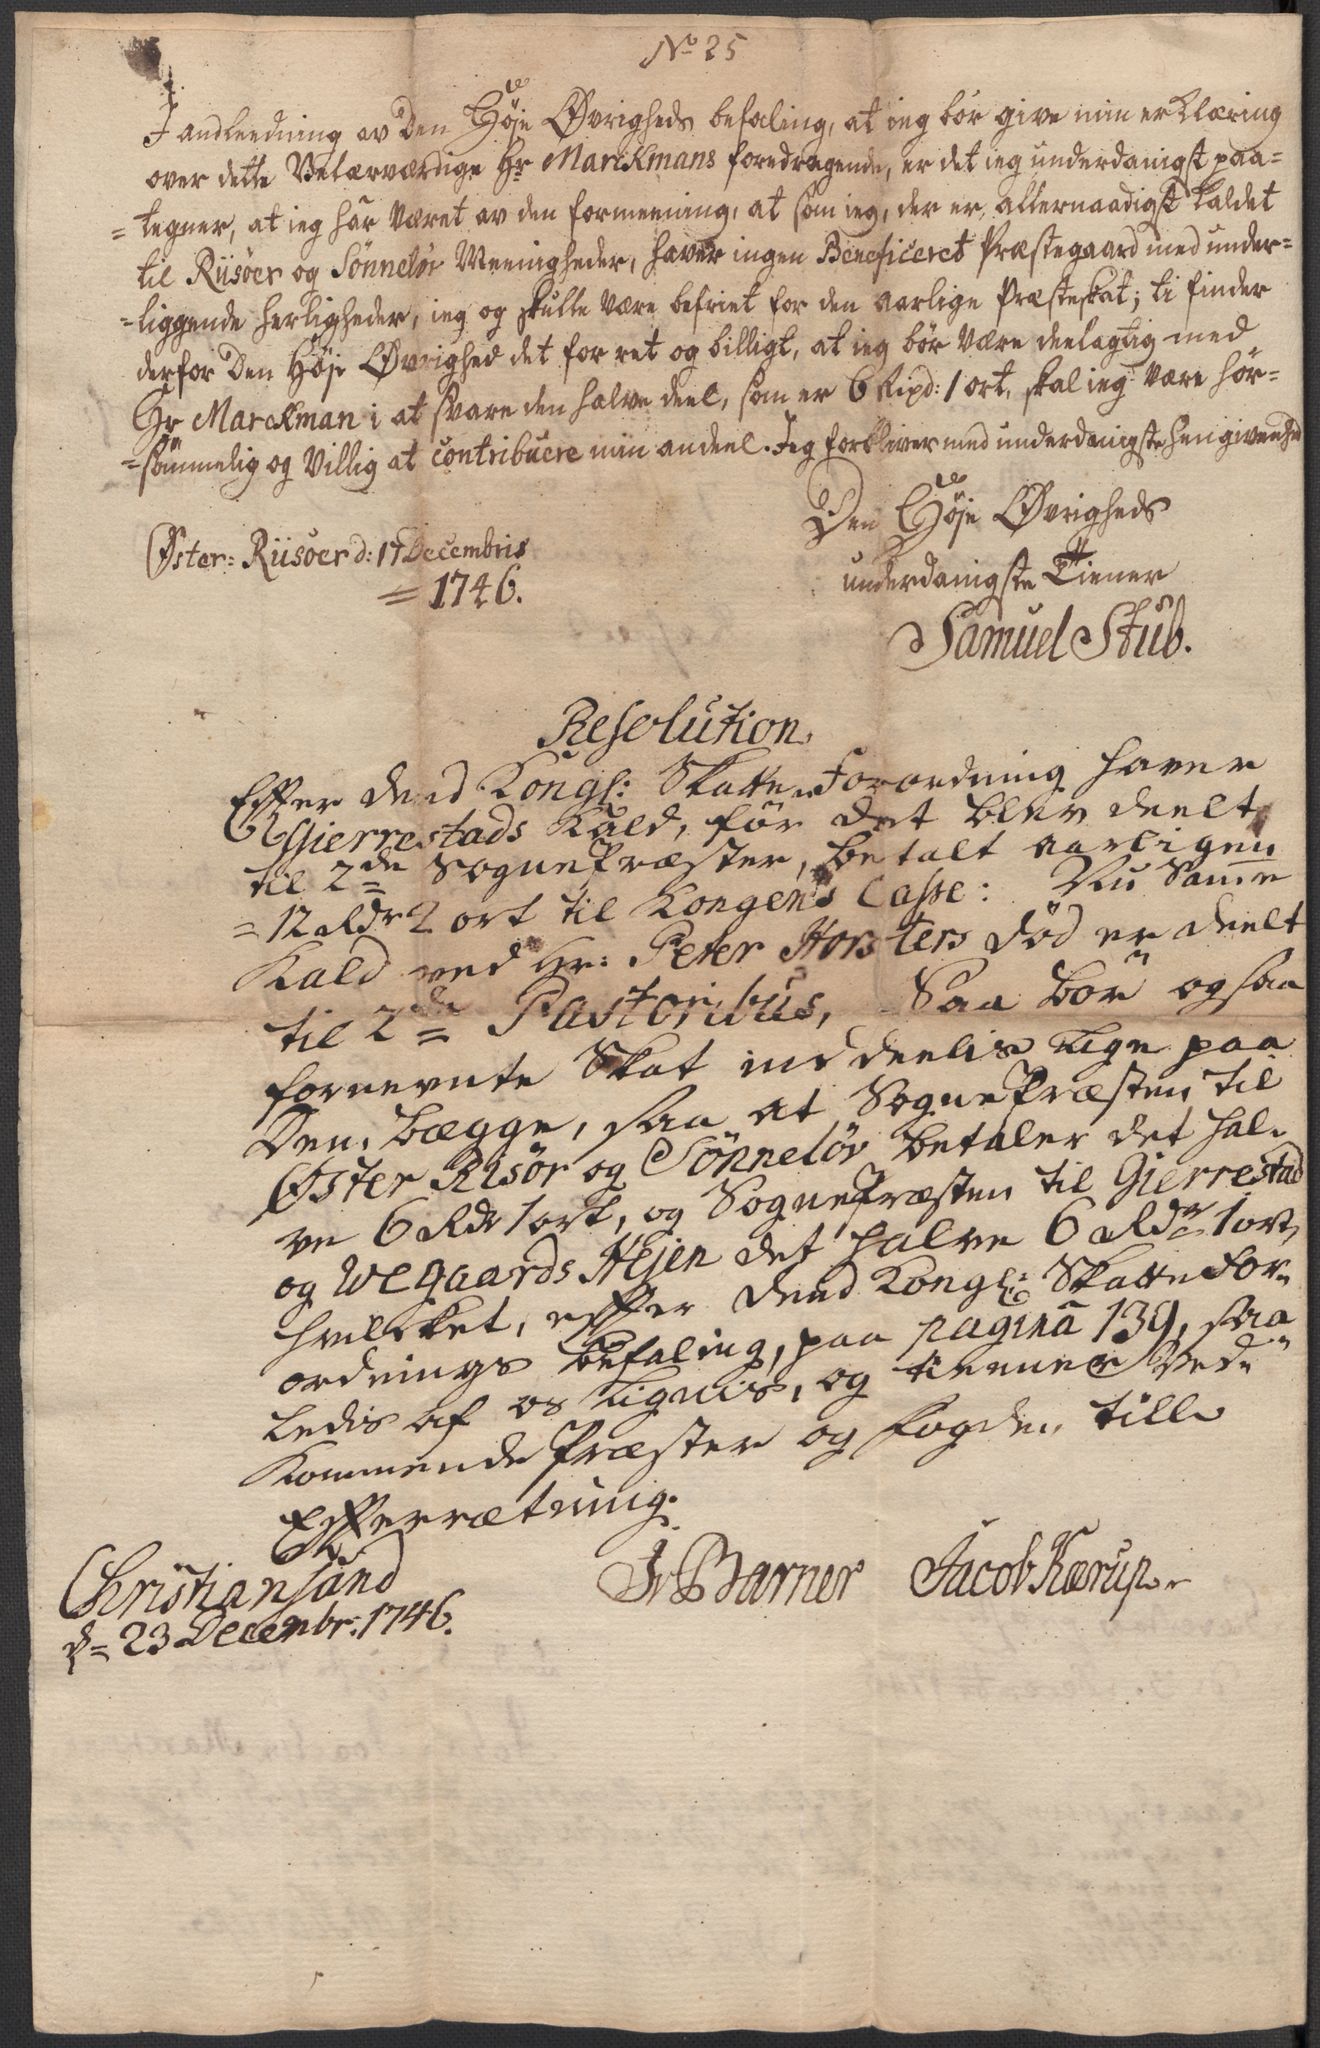 No 25
I andleedning av Den Høje Øvrigheds befaling, at ieg bør give min erklæring
over dette Velærværdige Hr Marckmans foredragende, er det ieg underdanigst paa=
=tegner, at ieg har været av den formeening, at som ieg, der er allernaadigst kaldet
til Riisøer og Sønneløv Meenigheder, haver ingen Beneficeret Præstegaard med under=
=liggende herligheder, ieg og skulle være befriet for den aarlige Præsteskat; ti finder
derfor Den Høje Øvrighed det for ret og billigt, at ieg bør være deelagtig med
Hr Marckman i at svare den halve deel, som er 6 Rixd: 1 ort, skal ieg være hør=
=sömmelig og villig at contribuere min andeel. Jeg forbliver med underdanigste hengivenhed
Den Høje Øvrigheds
Øster= Riisøer d: 17 Decembris
= 1746.
underdanigste Tiener
Samuel Stub.
Resolution.
Efter dend Kongl: Skatte Forordning haver
Gjerrestads Kald, før det blev deelt
til 2de SognePræster, betalt aarligen
= 12 Rdr 2 ort til Kongens Casse: Nu Samme
Kald ved Hr: Peter Horsters død er deelt
til 2de Pastoribus, Saa bør ogsaa
fornevnte Skat inddeelis lige paa
Dem bægge, saa at SognePræsten til
Øster Risør og Sønneløv betaler det hal-
ve 6 Rdr 1 ort, og SognePræsten til Gjerrestad
og Wegaards Hejen det halve 6 Rdr 1 ort,
hvilcket, efter dend Kongl: Skatte For=
ordnings befaling, paa pagina 139, saa
ledis af os lignis, og tienner Ved=
Kommende Præster og Fogden till
Efterrætning.
Christiansand
d= 23 Decembr: 1746.
JvBarner Jacob Kærup